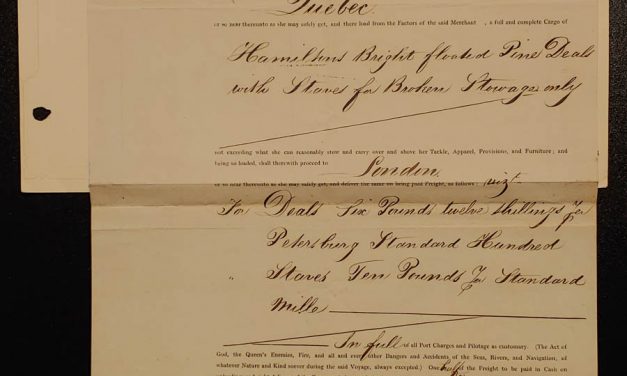 Quebec
or so near thereunto as she may safely get, and there load from the Factors of the said Merchant , a full and complete Cargo of
Hamiltons Bright floated Pine Deals
with Staves for Broken Stowage only
not exceeding what she can reasonably stow and carry over and above her Tackle, Apparel, Provisions, and Furniture; and
being so loaded, shall therewith proceed to
London
or so near thereunto as she may safely get, and deliver the same on being paid Freight, as follows: vizt
For Deals Six Pounds twelve shillings
Petersburg Standard Hundred
" Staves Ten Pounds Standard
Mille
In full of all Port Charges and Pilotage as customary. (The Act of
God, the Queen's Enemies, Fire, and all and every other Dangers and Accidents of the Seas, Rivers, and Navigation, of
whatever Nature and Kind soever during the said Voyage, always excepted.) One half of the Freight to be paid in Cash on